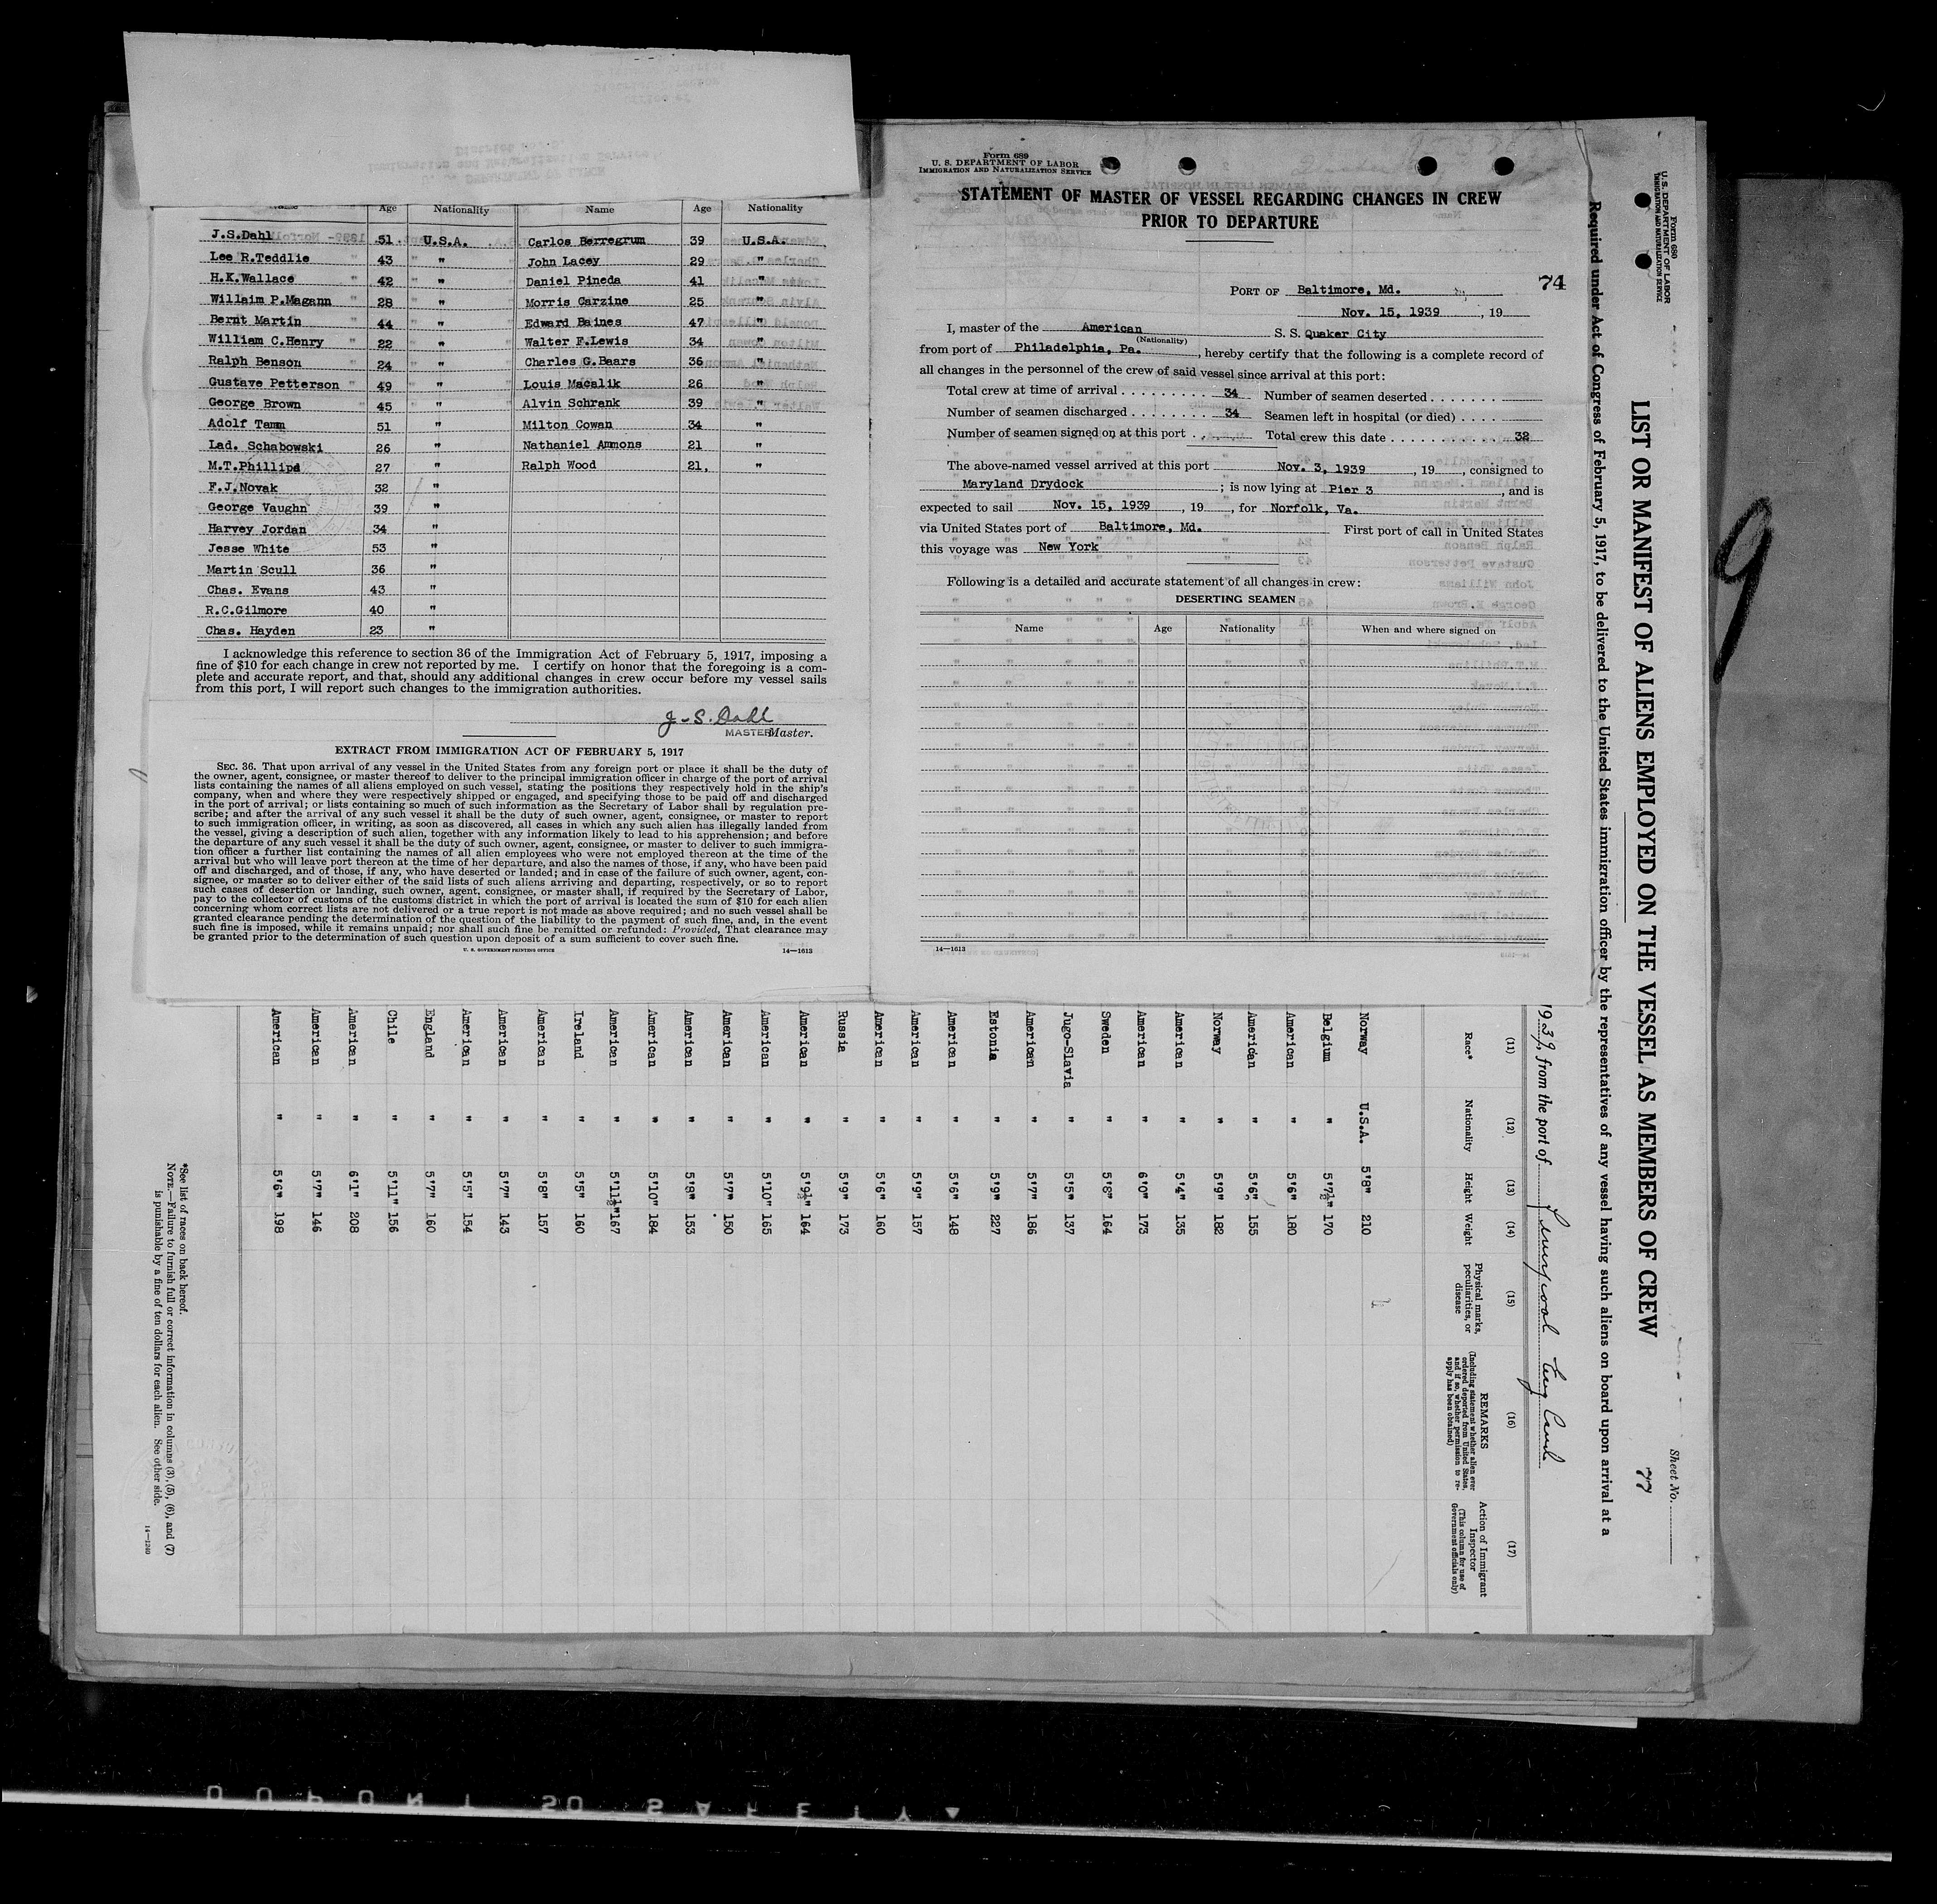 Name Age Nationality Name Age Nationality
J.S.Dahl 51 U.S.A. Carlos Berregrum 39 U.S.A.
Lee R.Teddlie 43 " John Lacey 29 "
H.K.Wallace 42 " Daniel Pineda 41 "
Willaim P.Magann 28 " Morris Carzine 25 "
Bernt Martin 44 " Edward Baines 47 "
William C.Henry 22 " Walter F.Lewis 34 "
Ralph Benson 24 " Charles G.Bears 36 "
Gustave Petterson 49 " Louis Macalik 26 "
George Brown 45 " Alvin Schrenk 39 "
Adolf Tamm 51 " Milton Cowan 34 "
Lad. Schabowski 26 " Nathaniel Ammons 21 "
M.T.Phillipd 27 " Ralph Wood 21. "
F.J.Novak 32 "
George Vaughn 39 "
Harvey Jordan 34 "
Jesse White 53 "
Martin Scull 36 "
Chas. Evans 43 "
R.C.Gilmore 40 "
Chas. Hayden 23 "
I acknowledge this reference to section 36 of the Immigration Act of February 5, 1917, imposing a
fine of $10 for each change in crew not reported by me. I certify on honor that the foregoing is a com-
plete and accurate report, and that, should any additional changes in crew occur before my vessel sails
from this port, I will report such changes to the immigration authorities.
J-S.Dahl
MASTER Master.
EXTRACT FROM IMMIGRATION ACT OF FEBRUARY 5, 1917
SEC. 36. That upon arrival of any vessel in the United States from any foreign port or place it shall be the duty of
the owner, agent, consignee, or master thereof to deliver to the principal immigration officer in charge of the port of arrival
lists containing the names of all aliens employed on such vessel, stating the positions they respectively hold in the ship's
company, when and where they were respectively shipped or engaged, and specifying those to be paid off and discharged
in the port of arrival; or lists containing so much of such information as the Secretary of Labor shall by regulation pre-
scribe; and after the arrival of any such vessel it shall be the duty of such owner, agent, consignee, or master to report
to such immigration officer, in writing, as soon as discovered, all cases in which any such alien has illegally landed from
the vessel, giving a description of such alien, together with any information likely to lead to his apprehension; and before
the departure of any such vessel it shall be the duty of such owner, agent, consignee, or master to deliver to such immigra-
tion officer a further list containing the names of all alien employees who were not employed thereon at the time of the
arrival but who will leave port thereon at the time of her departure, and also the names of those, if any, who have been paid
off and discharged, and of those, if any, who have deserted or landed; and in case of the failure of such owner, agent, con-
signee, or master so to deliver either of the said lists of such aliens arriving and departing, respectively, or so to report
such cases of desertion or landing, such owner, agent, consignee, or master shall, if required by the Secretary of Labor,
pay to the collector of customs of the customs district in which the port of arrival is located the sum of $10 for each alien
concerning whom correct lists are not delivered or a true report is not made as above required; and no such vessel shall be
granted clearance pending the determination of the question of the liability to the payment of such fine, and, in the event
such fine is imposed, while it remains unpaid; nor shall such fine be remitted or refunded: Provided, That clearance may
be granted prior to the determination of such question upon deposit of a sum sufficient to cover such fine.
U. S. GOVERNMENT PRINTING OFFICE 14—1613
Form 689
U. S. DEPARTMENT OF LABOR
IMMIGRATION AND NATURALIZATION SERVICE
STATEMENT OF MASTER OF VESSEL REGARDING CHANGES IN CREW
PRIOR TO DEPARTURE
74
PORT OF Baltimore, Md.
Nov. 15, 1939, 19
I, master of the American S. S. Quaker City
(Nationality)
from port of Philadelphia, Pa., hereby certify that the following is a complete record of
all changes in the personnel of the crew of said vessel since arrival at this port:
Total crew at time of arrival 34 Number of seamen deserted
Number of seamen discharged 34 Seamen left in hospital (or died)
Number of seamen signed on at this port Total crew this date 32
The above-named vessel arrived at this port Nov. 3, 1939, 19, consigned to
Maryland Drydock; is now lying at Pier 3, and is
expected to sail Nov. 15, 1939, 19, for Norfolk, Va.
via United States port of Baltimore, Md. First port of call in United States
this voyage was New York
Following is a detailed and accurate statement of all changes in crew:
DESERTING SEAMEN
Name Age Nationality When and where signed on
14—1613
Form 680
U. S. DEPARTMENT OF LABOR
IMMIGRATION AND NATURALIZATION SERVICE
Sheet No.
LIST OR MANIFEST OF ALIENS EMPLOYED ON THE VESSEL AS MEMBERS OF CREW 77
Required under Act of Congress of February 5, 1917, to be delivered to the United States immigration officer by the representatives of any vessel having such aliens on board upon arrival at a
1939, from the port of Liverpool England
(11) (12) (13) (14) (15) (16) (17)
Race* Nationality Height Weight Physical marks, peculiarities, or disease REMARKS (Including statement whether alien ever ordered deported from United States, and if so, whether permission to re-apply has been obtained) Action of Immigrant Inspector (This column for use of Government officials only)
Norway U.S.A. 5'8" 210
Belgium " 5'7½" 170
American " 5'6" 180
American " 5'6" 155
Norway " 5'9" 182
American " 5'4" 135
American " 6'0" 173
Sweden " 5'8" 164
Jugo-Slavia " 5'5" 137
American " 5'7" 186
Estonia " 5'9" 227
American " 5'6" 148
American " 5'9" 157
American " 5'6" 160
Russia " 5'9" 173
American " 5'9½" 164
American " 5'10" 165
American " 5'7" 150
American " 5'8" 153
American " 5'10" 184
American " 5'11½" 167
Ireland " 5'5" 160
American " 5'8" 157
American " 5'7" 143
American " 5'5" 154
England " 5'7" 160
Chile " 5'11" 156
American " 6'1" 208
American " 5'7" 146
American " 5'6" 198
*See list of races on back hereof.
NOTE.—Failure to furnish full or correct information in columns (3), (5), (6), and (7)
is punishable by a fine of ten dollars for each alien. See other side.
14—1240
9
DUPONT SO SAFETY